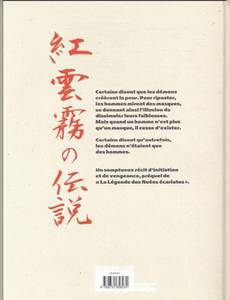 紅雲霧の伝説
Certains disent que les démons
créèrent la peur. Pour riposter,
les hommes mirent des masques,
se donnant ainsi l'illusion de
dissimuler leurs faiblesses.
Mais quand un homme n'est plus
qu'un masque, il cesse d'exister.
Certains disent qu'autrefois,
les démons n'étaient que
des hommes.
Un somptueux récit d'initiation
et de vengeance, préquel de
« La Légende des Nuées écarlates ».